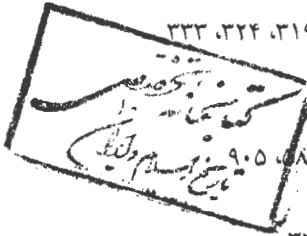 ۳۱۹، ۳۲۴، ۳۳۳
کتابخانه تخصصی
تاریخ اسلام و ایران
۹۰۵